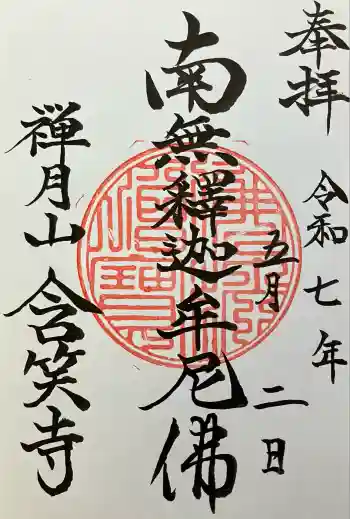 奉拝
令和七年
五月二日
南無釋迦牟尼佛
禅月山含笑寺